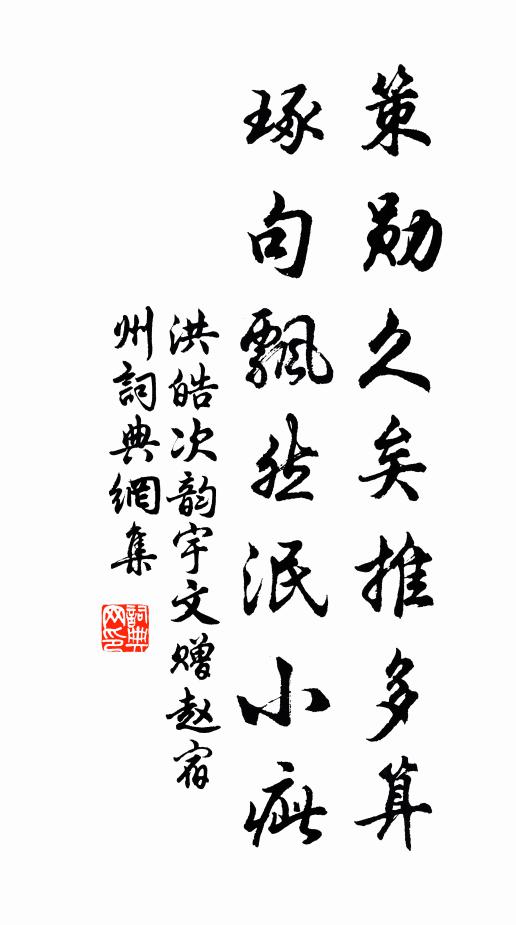 策勋久矣推多算
琢句飘然泯小疵
洪皓次韵宇文赠赵宿
州詞典網集
詞典網印